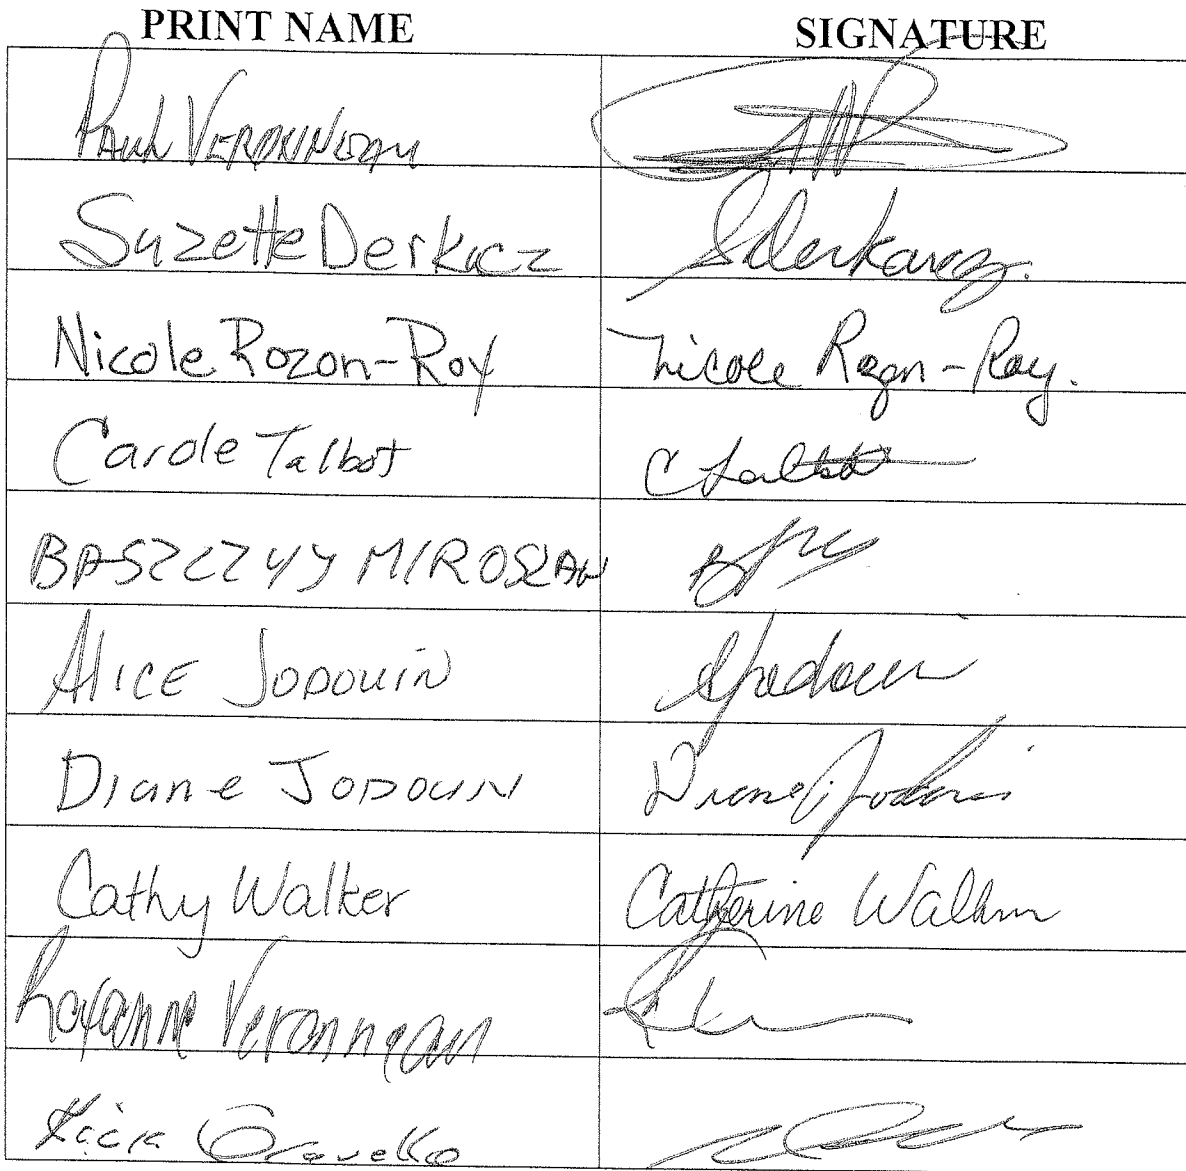 PRINT NAME SIGNATURE
PAUL VERONNEAU
Suzette Derkacz Sderkacz.
Nicole Rozon-Roy Nicole Rozon-Roy.
Carole Talbot C Talbot
BASZCZYY MIROSLAW
ALICE JODOUIN AJodouin
Diane JODOUIN Diane Jodouin
Cathy Walker Catherine Walker
Roxanne Veronneau